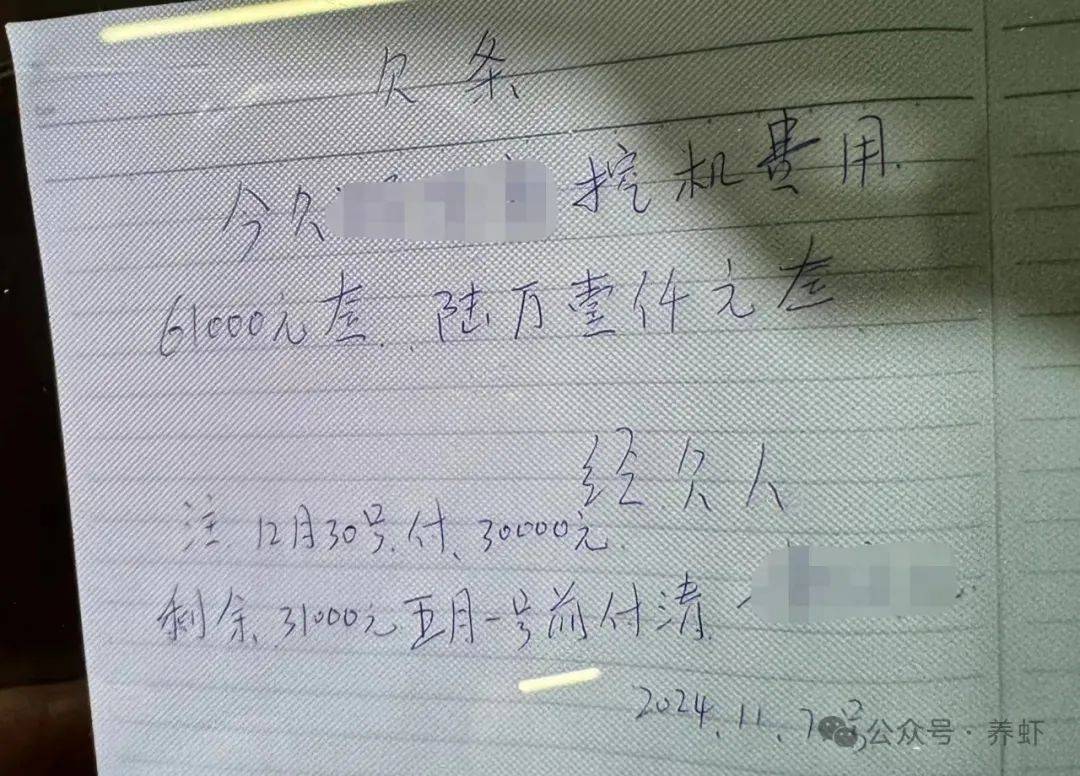 欠条
今欠 挖机费用.
61000元 陆万壹仟元
经欠人
注.12月30号.付.30000元.
剩余.31000元五月一号前付清
2024.11.7号
公众号·养虾